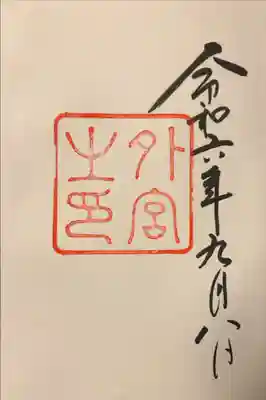 令和六年九月八日
外宮
之印